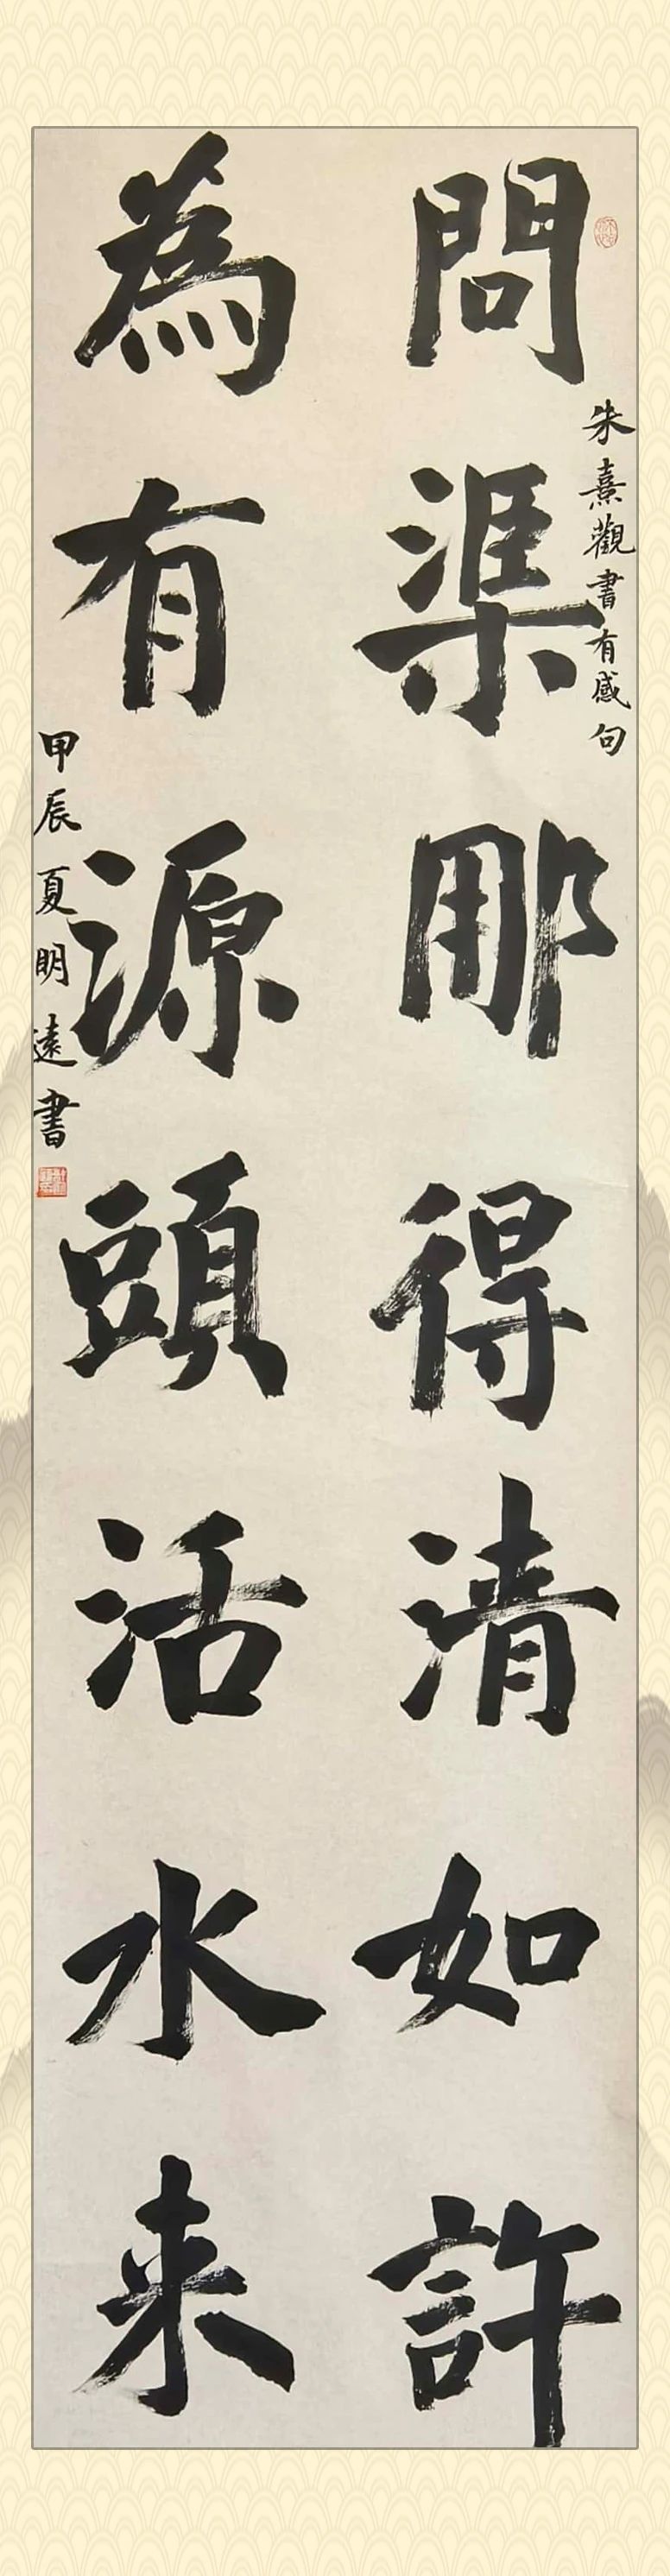 問渠那得清如許
朱熹觀書有感句
為有源頭活水来
甲辰夏明遠書